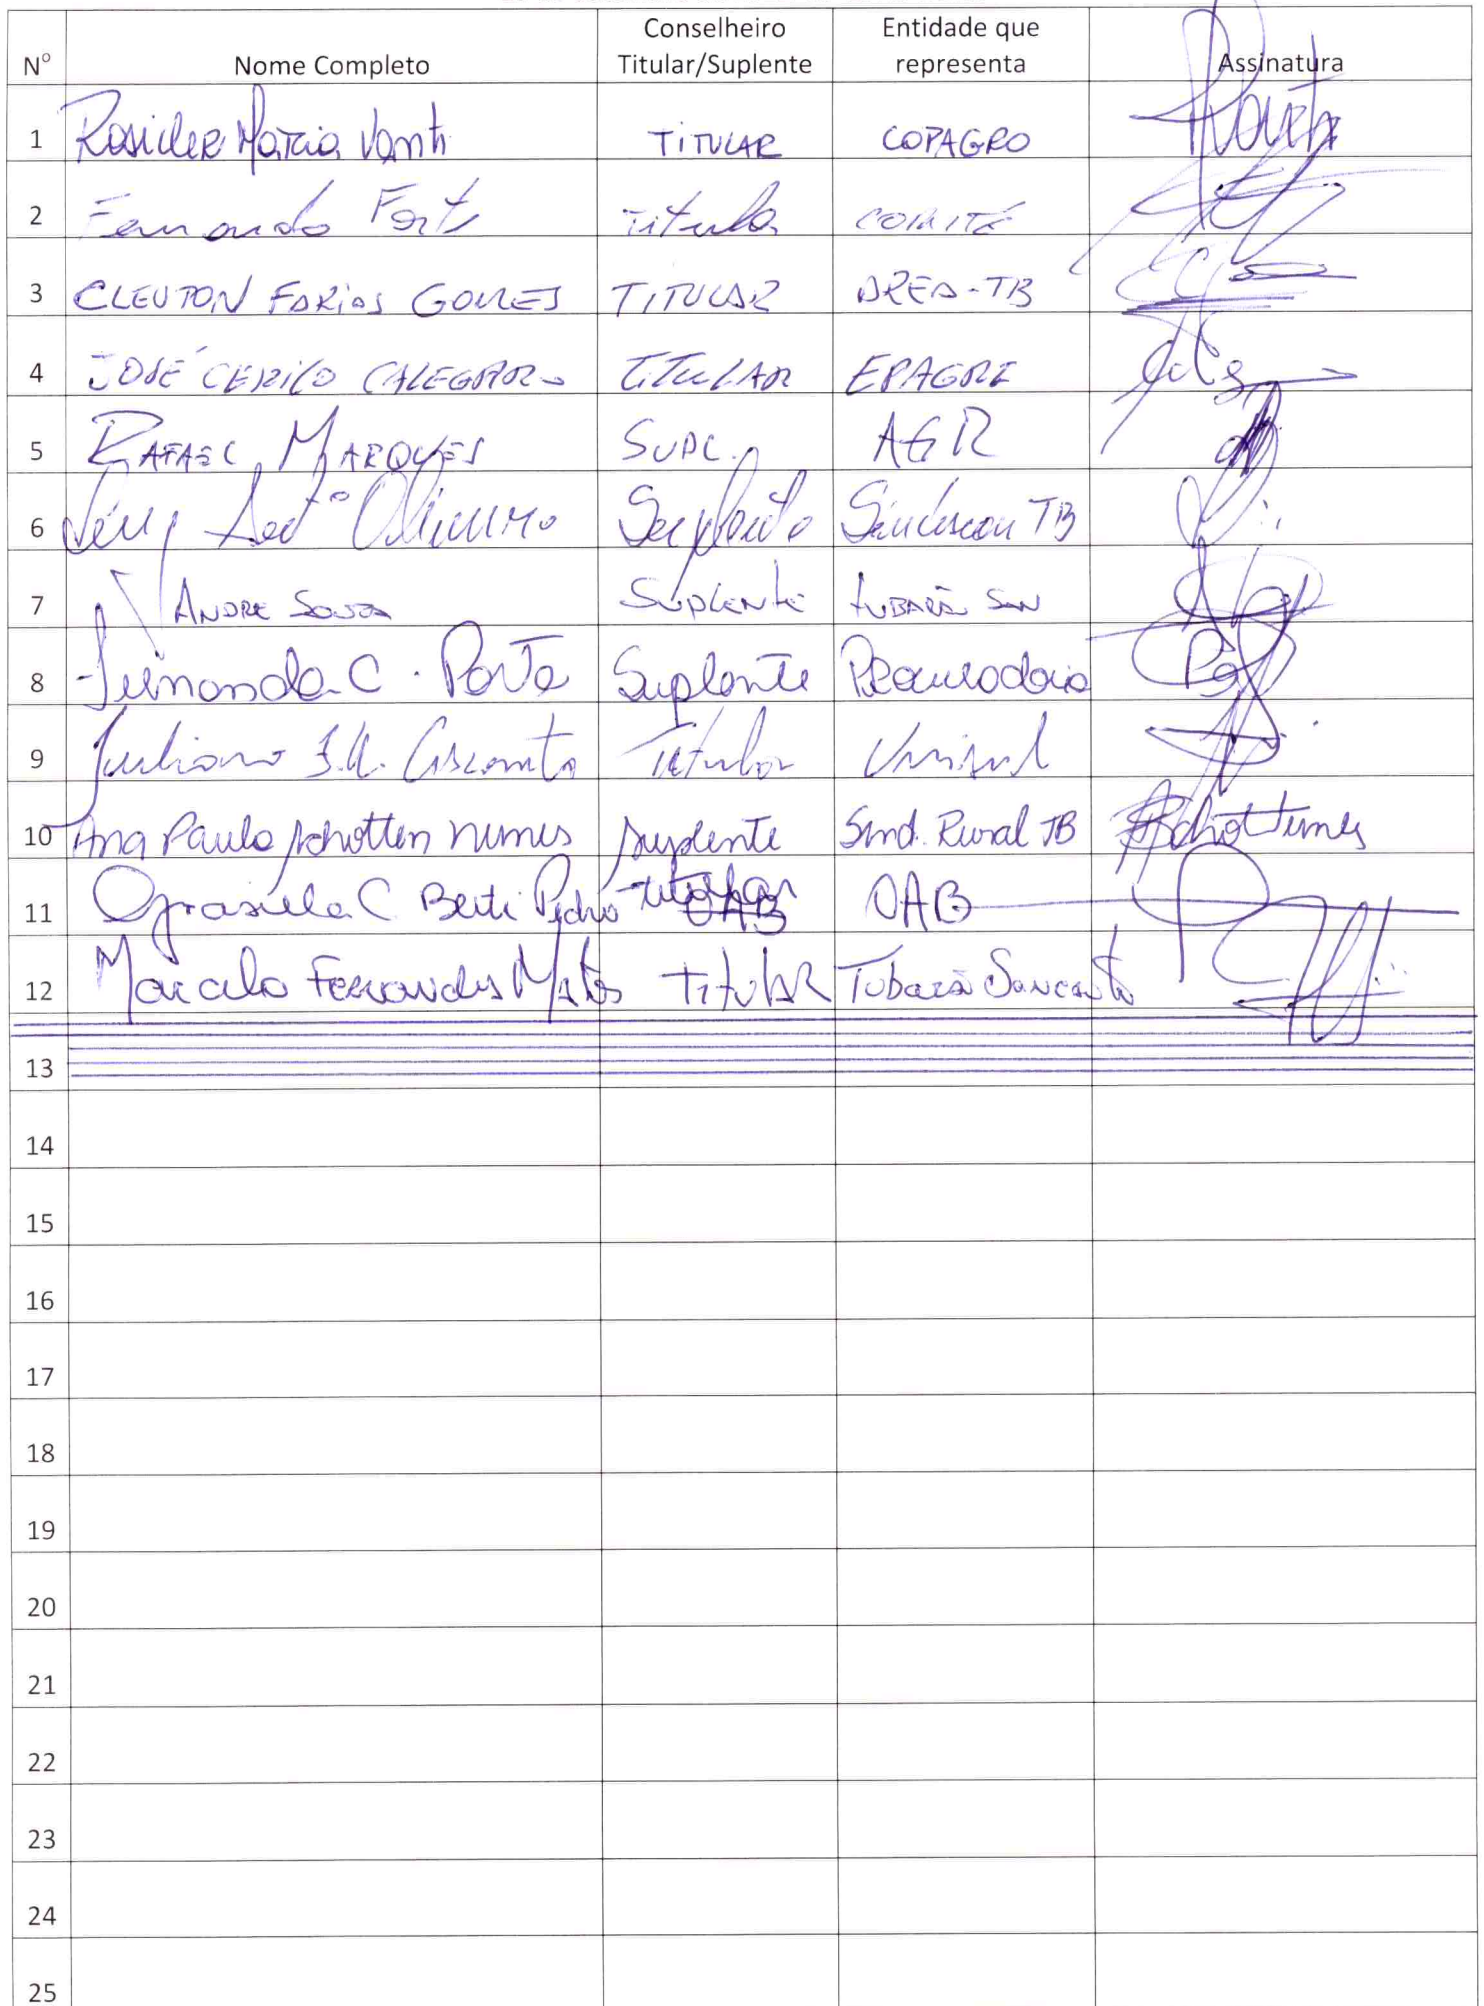 Nº Nome Completo Conselheiro Titular/Suplente Entidade que representa Assinatura
1 Rosicler Marcia Vanti TiTULAR COPAGRO
2 Fernando Titular COMITÊ
3 CLEUTON FARIAS GOMES TITULAR AREA-TB
4 JOSÉ CERILO CALEGARO TITULAR EPAGRI
5 RAFAEL MARQUES SUPL. AGR
6 Suplente Sinduscon TB
7 ANDRE SOUZA Suplente TUBARÃO SAN
8 Fernanda C. Porto Suplente Procuradoria
9 Juliano Titular Unisul
10 Ana Paula Schotten Nunes Suplente Sind. Rural TB
11 Grasiela C Berti Pedro Titular OAB OAB
12 Marcelo Fernandes Matos Titular Tubarão Saneamento
13
14
15
16
17
18
19
20
21
22
23
24
25